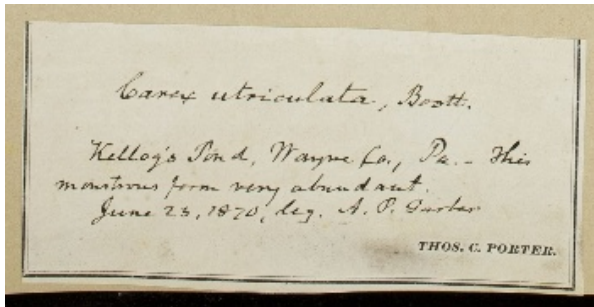 Carex utriculata, Boott.
Kellog's Pond, Wayne Co., Pa. - This
monstrous form very abundant.
June 23, 1870, leg. A. P. Garber
THOS. C. PORTER.